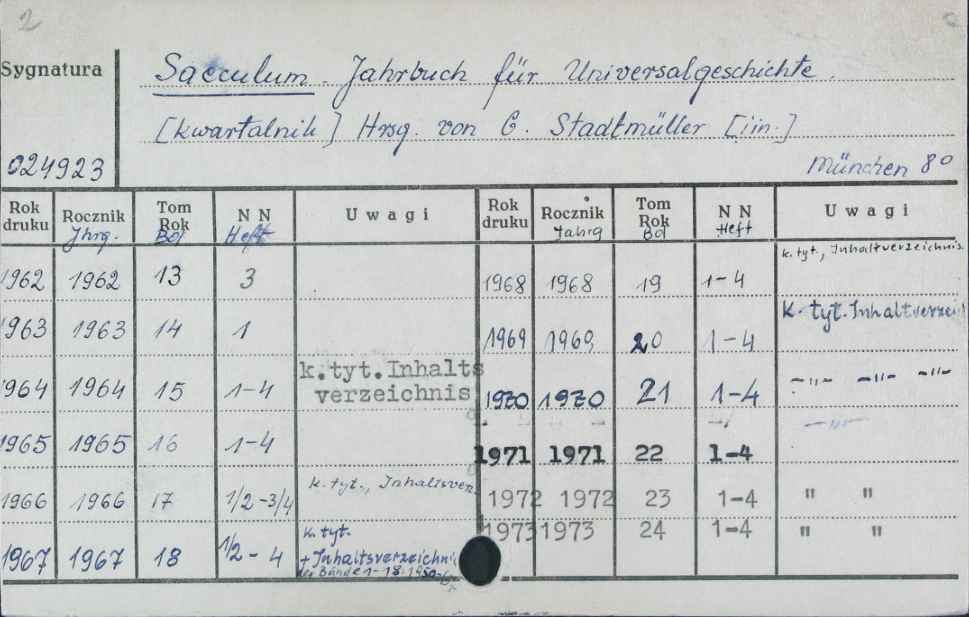 2
Sygnatura
Saeculum. Jahrbuch für Universalgeschichte.
[kwartalnik] Hrsg. von G. Stadtmüller [iin.]
024923
München 8°
Rok druku Rocznik Jhrg. Tom Rok Bd N N Heft Uwagi
1962 1962 13 3
1963 1963 14 1
1964 1964 15 1-4 k.tyt.Inhalts verzeichnis
1965 1965 16 1-4
1966 1966 17 1/2-3/4 k. tyt., Inhaltsverz.
1967 1967 18 1/2-4 k. tyt. + Inhaltsverzeichnis der Bände 1-18
Rok druku Rocznik Jahrg Tom Rok Bd N N Heft Uwagi
1968 1968 19 1-4 k. tyt., Inhaltverzeichnis
1969 1969 20 1-4 k. tyt. Inhaltverzei
1970 1970 21 1-4 -"- -"- -"-
1971 1971 22 1-4 -"-
1972 1972 23 1-4 " "
1973 1973 24 1-4 " "